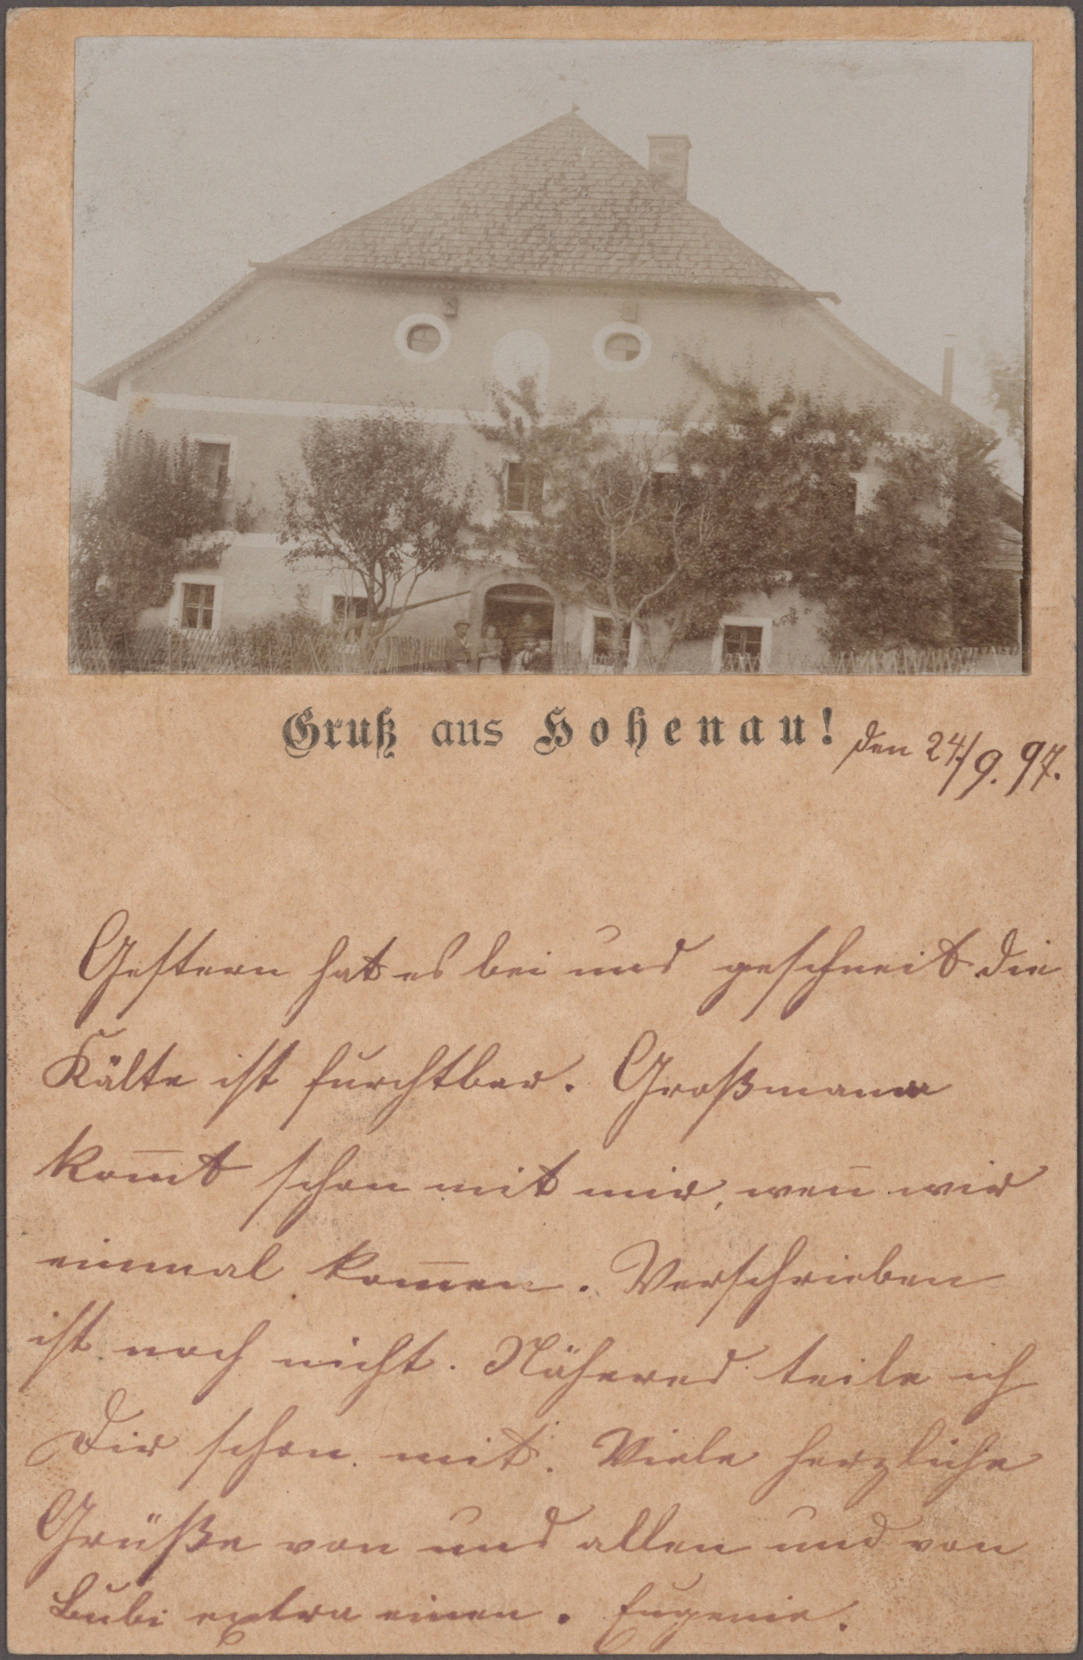 Gruß aus Hohenau!
den 24./9. 97.
Gestern hat es bei uns geschneit die
Kälte ist furchtbar. Großmann
kom̅t schon mit mir, wen̅ wir
einmal kom̅en. Verschrieben
ist noch nicht. Näheres teile ich
Dir schon mit. Viele herzliche
Grüße von uns allen und von
Bubi extra einen. Eugenie.